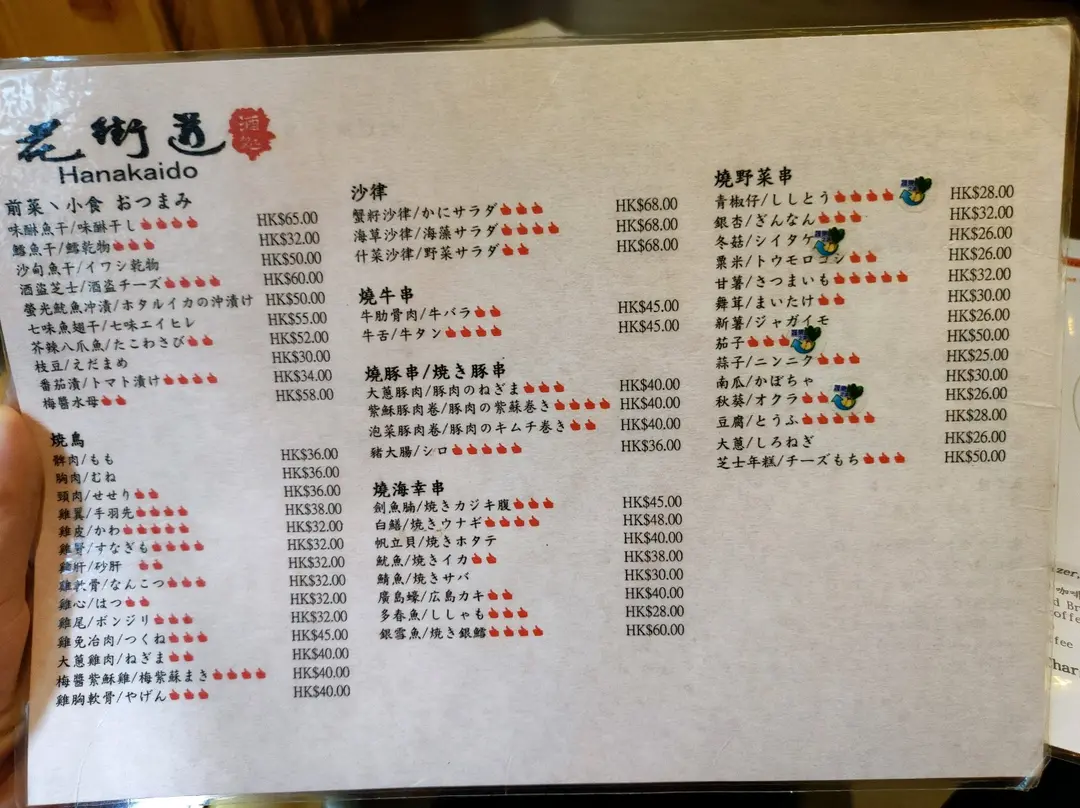 花街道 酒処
Hanakaido
前菜、小食 おつまみ
味醂魚干/味醂干し HK$65.00
鱈魚干/鱈乾物 HK$32.00
沙甸魚干/イワシ乾物 HK$50.00
酒盗芝士/酒盗チーズ HK$60.00
螢光魷魚冲漬/ホタルイカの沖漬け HK$50.00
七味魚翅干/七味エイヒレ HK$55.00
芥辣八爪魚/たこわさび HK$52.00
枝豆/えだまめ HK$30.00
番茄漬/トマト漬け HK$34.00
梅醬水母 HK$58.00
焼鳥
髀肉/もも HK$36.00
胸肉/むね HK$36.00
頸肉/せせり HK$36.00
雞翼/手羽先 HK$38.00
雞皮/かわ HK$32.00
雞腎/すなぎも HK$32.00
雞肝/砂肝 HK$32.00
雞軟骨/なんこつ HK$32.00
雞心/はつ HK$32.00
雞尾/ボンジリ HK$32.00
雞免治肉/つくね HK$45.00
大蔥雞肉/ねぎま HK$40.00
梅醬紫穌雞/梅紫蘇まき HK$40.00
雞胸軟骨/やげん HK$40.00
沙律
蟹籽沙律/かにサラダ HK$68.00
海草沙律/海藻サラダ HK$68.00
什菜沙律/野菜サラダ HK$68.00
燒牛串
牛肋骨肉/牛バラ HK$45.00
牛舌/牛タン HK$45.00
燒豚串/焼き豚串
大蔥豚肉/豚肉のねぎま HK$40.00
紫穌豚肉卷/豚肉の紫蘇巻き HK$40.00
泡菜豚肉卷/豚肉のキムチ巻き HK$40.00
豬大腸/シロ HK$36.00
燒海幸串
劍魚腩/焼きカジキ腹 HK$45.00
白鱔/焼きウナギ HK$48.00
帆立貝/焼きホタテ HK$40.00
魷魚/焼きイカ HK$38.00
鯖魚/焼きサバ HK$30.00
廣島蠔/広島カキ HK$40.00
多春魚/ししゃも HK$28.00
銀雪魚/焼き銀鱈 HK$60.00
燒野菜串
青椒仔/ししとう HK$28.00
銀杏/ぎんなん HK$32.00
冬菇/シイタケ HK$26.00
粟米/トウモロコシ HK$26.00
甘薯/さつまいも HK$32.00
舞茸/まいたけ HK$30.00
新薯/ジャガイモ HK$26.00
茄子 HK$50.00
蒜子/ニンニク HK$25.00
南瓜/かぼちゃ HK$30.00
秋葵/オクラ HK$26.00
豆腐/とうふ HK$28.00
大蔥/しろねぎ HK$26.00
芝士年糕/チーズもち HK$50.00